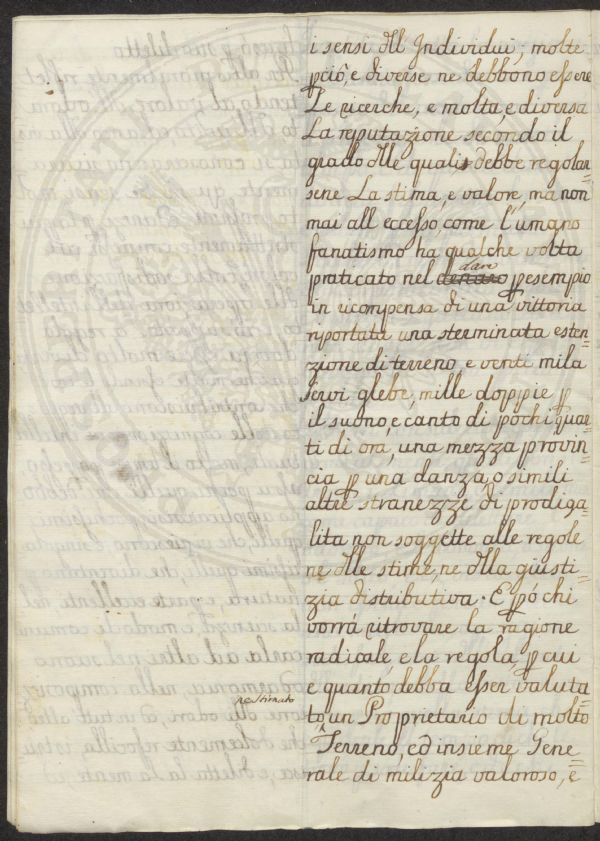 i sensi dll Individui; molte
pciò, e diverse ne debbono essere
Le ricerche, e molta, e diversa
La reputazione secondo il
grado dlle quali debbe regolar
sene La stima, e valore, ma non
mai all eccesso, come l'umano
fanatismo ha qualche volta
dare
praticato nel denaro p esempio
in ricompensa di una vittoria
riportata una sterminata esten=
zione di terreno, e venti mila
servi glebe, mille doppie p
il suono, e canto di pochi quar
ti di ora, una mezza provin=
cia p una danza, o simili
altre stranezze di prodiga=
lita non soggette alle regole
ne dlle stime, ne dlla giusti=
zia distributiva. E pó chi
vorrá ritrovare la ragione
radicale, e la regola, p cui
e quanto, debba esser valuta=
pestimato
to, un Proprietario di molto
Terreno, ed insieme Gene=
rale di milizia valoroso, e